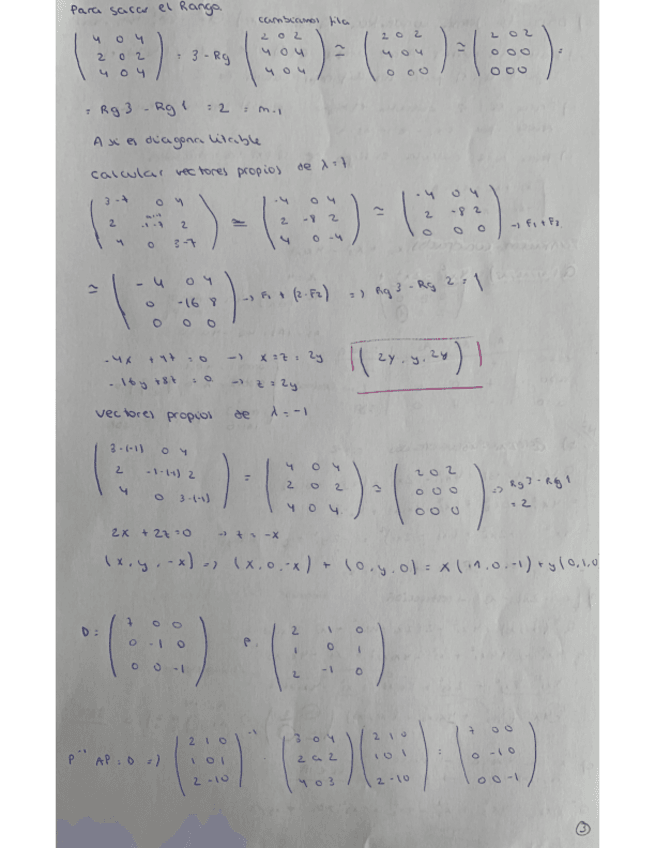 Para sacar el Rango
cambiamos fila
( 4 0 4 ; 2 0 2 ; 4 0 4 ) = 3 - Rg ( 2 0 2 ; 4 0 4 ; 4 0 4 ) ≃ ( 2 0 2 ; 4 0 4 ; 0 0 0 ) ≃ ( 2 0 2 ; 0 0 0 ; 0 0 0 ) =
= Rg 3 - Rg 1 = 2 = m.1
A es diagonalitable
calcular vectores propios de λ=7
( 3-7 0 4 ; 2 -1-7 2 ; 4 0 3-7 ) ≃ ( -4 0 4 ; 2 -8 2 ; 4 0 -4 ) ≃ ( -4 0 4 ; 2 -8 2 ; 0 0 0 ) → F1 + F3
≃ ( -4 0 4 ; 0 -16 8 ; 0 0 0 ) → F1 + (2·F2) => Rg 3 - Rg 2 = 1
-4x + 4z = 0 → x = z = 2y ( 2y, y, 2y )
-16y + 8z = 0 → z = 2y
vectores propios de λ=-1
( 3-(-1) 0 4 ; 2 -1-(-1) 2 ; 4 0 3-(-1) ) = ( 4 0 4 ; 2 0 2 ; 4 0 4 ) ≃ ( 2 0 2 ; 0 0 0 ; 0 0 0 ) => Rg 3 - Rg 1 = 2
2x + 2z = 0 → z = -x
(x, y, -x) => (x, 0, -x) + (0, y, 0) = x(1, 0, -1) + y(0, 1, 0
D = ( 7 0 0 ; 0 -1 0 ; 0 0 -1 ) P. ( 2 1 0 ; 1 0 1 ; 2 -1 0 )
P⁻¹ AP = D => ( 2 1 0 ; 1 0 1 ; 2 -1 0 )⁻¹ ( 3 0 4 ; 2 2 ; 4 0 3 ) ( 2 1 0 ; 1 0 1 ; 2 -1 0 ) = ( 7 0 0 ; 0 -1 0 ; 0 0 -1 )
3